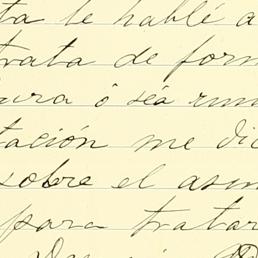 ta le hablé a
trata de for
ura ó séa
tación me di
sobre el asun
para tratar